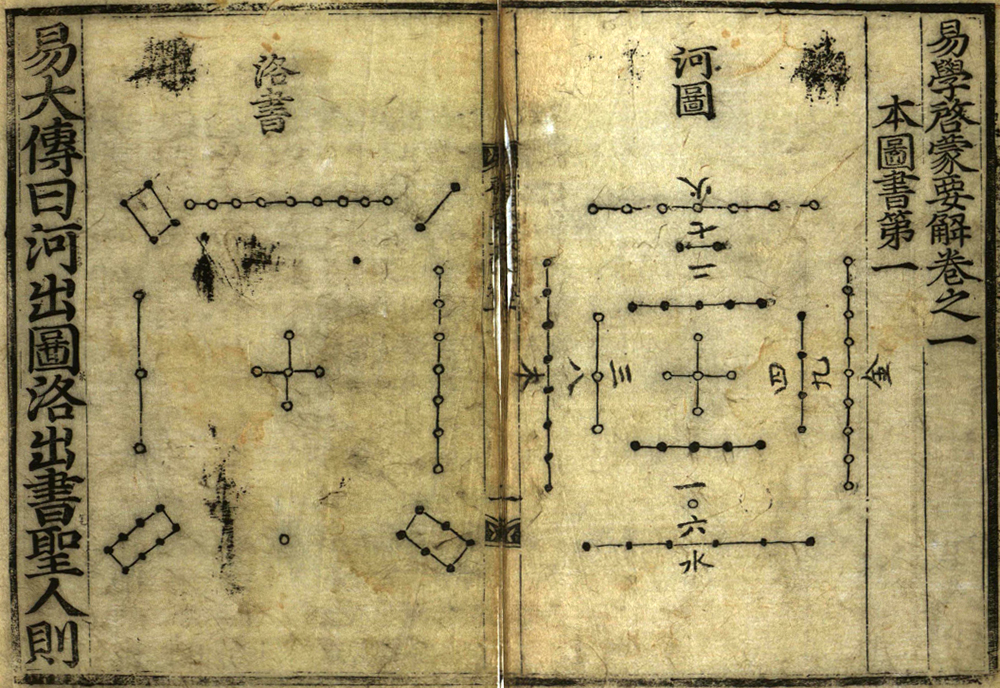 易學啓蒙要解卷之一
本圖書第一
河圖
火
七
二
金
九
四
三
八
木
一
六
水
洛書
易大傳曰河出圖洛出書聖人則